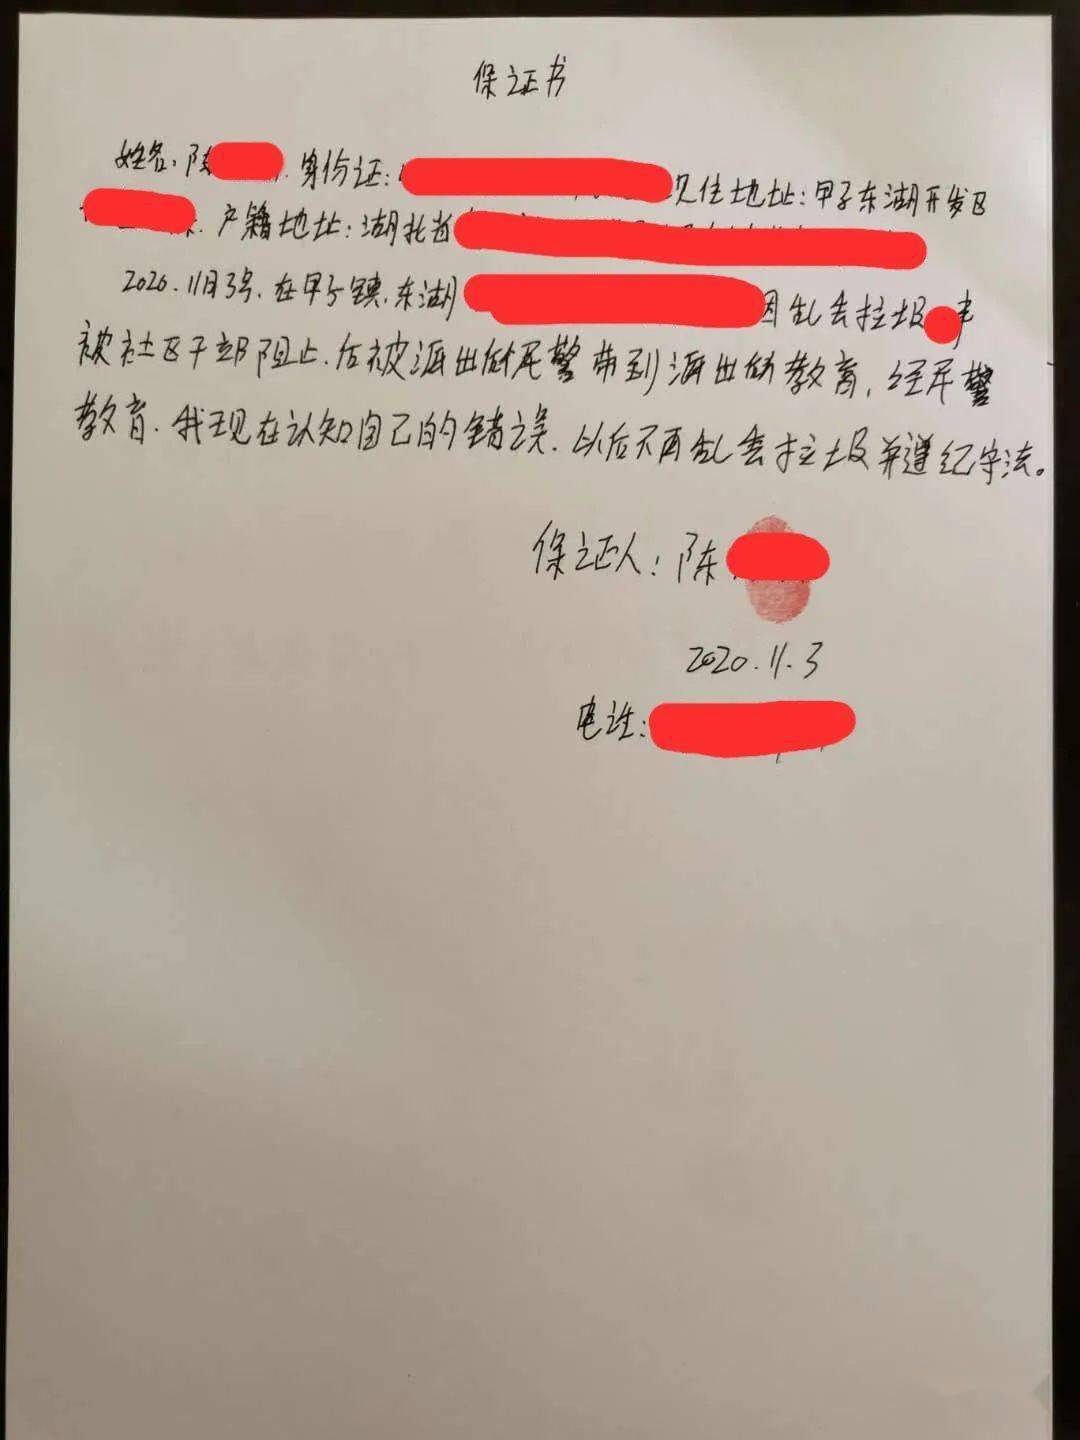 保证书
姓名:陈 身份证: 现住地址:甲子东湖开发区
户籍地址:湖北省
2020.11月3号.在甲子镇.东湖 因乱丢垃圾
被社区干部阻止.后被派出所民警带到派出所教育,经民警
教育.我现在认知自己的错误.以后不再乱丢垃圾并遵纪守法。
保证人:陈
2020.11.3
电话: